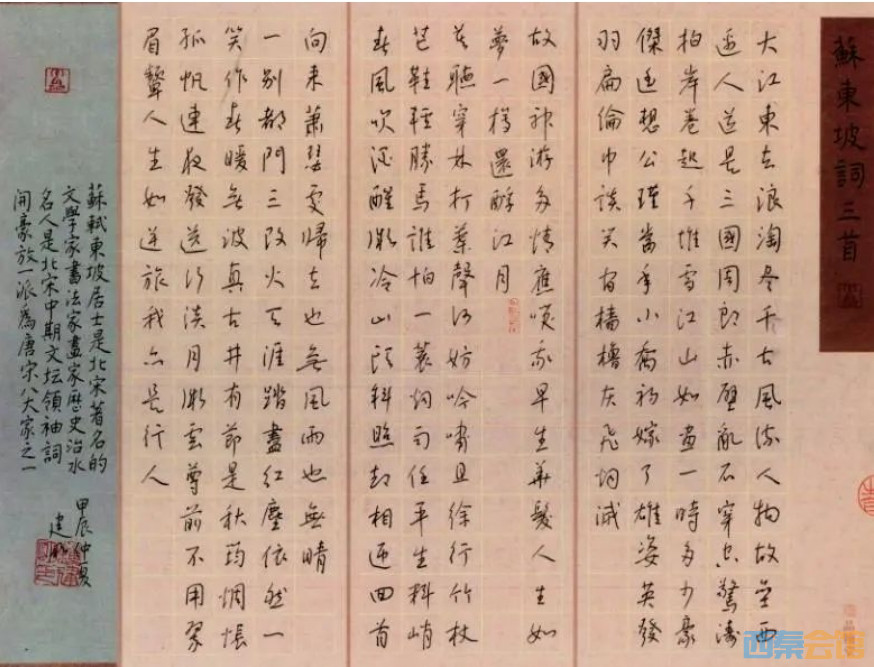 蘇東坡詞三首
大江東去浪淘尽千古風流人物故壘西
邊人道是三國周郎赤壁亂石穿空驚濤
拍岸卷起千堆雪江山如畫一時多少豪
傑遥想公瑾當年小喬初嫁了雄姿英發
羽扇綸巾談笑間檣櫓灰飛烟滅
故國神游多情應笑我早生華髮人生如
夢一樽還酹江月
莫聽穿林打葉聲何妨吟嘯且徐行竹杖
芒鞋輕勝馬誰怕一蓑烟雨任平生料峭
春風吹酒醒微冷山頭斜照却相迎回首
向来蕭瑟處歸去也無風雨也無晴
一别都門三改火天涯踏盡紅塵依然一
笑作春暖無波真古井有節是秋筠惆悵
孤帆連夜發送行淡月微雲尊前不用翠
眉顰人生如逆旅我亦是行人
蘇軾東坡居士是北宋著名的
文學家書法家畫家歷史治水
名人是北宋中期文坛領袖詞
開豪放一派為唐宋八大家之一
甲辰仲夏
建
西秦会馆